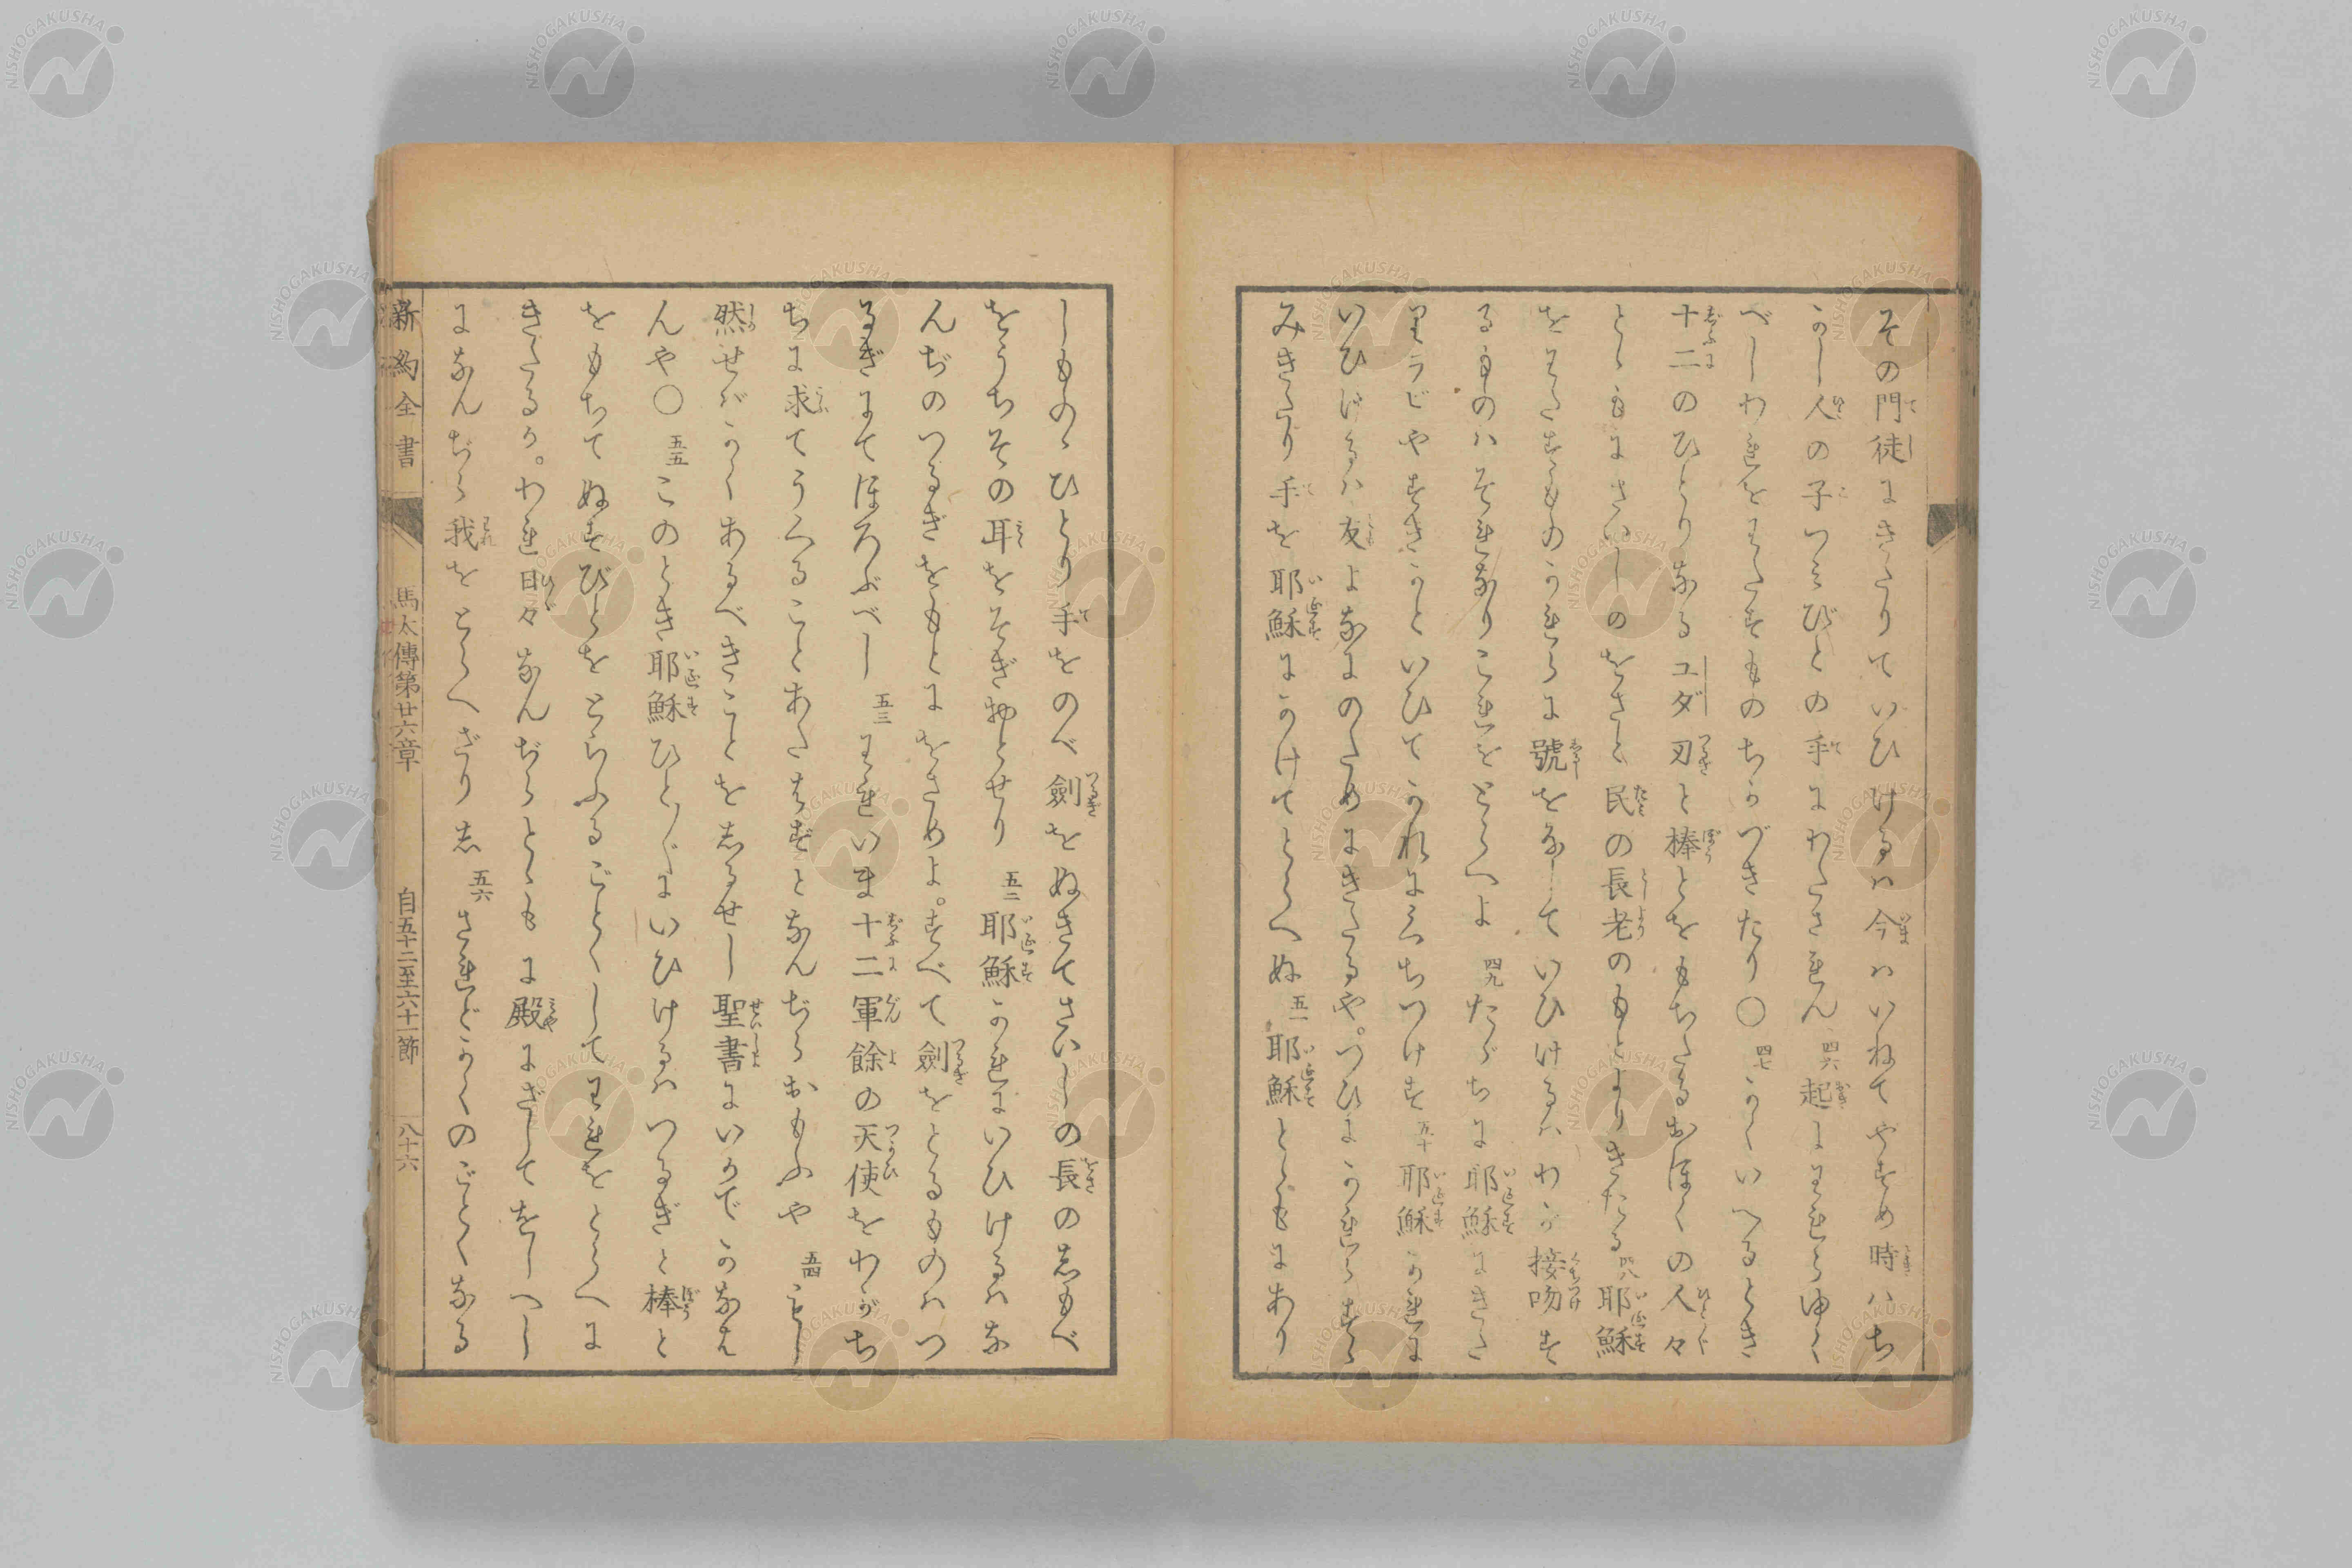 その門徒にきたりていひけるハ今ハいねてやすめ時ハち
かし人の子つミびとの手にわたされん 四六 起よわれらゆく
べしわれをわたすものちかづきたり〇 四七 かくいへるとき
十二のひとりなるユダ刃と棒とをもちたるおほくの人々
とゝもにさいしのをさと民の長老のもとよりきたる 四八 耶穌
をわたすものかれらに號をなしていひけるハわが接吻す
るものハそれなりこれをとらへよ 四九 たゞちに耶穌にきた
りラビやすきかといひてかれにくちつけす 五十 耶穌かれに
いひけるハ友よなにのためにきたるや。つひにかれらすゝ
みきたり手を耶穌にかけてとらへぬ 五一 耶穌とゝもにあり
しものゝひとり手をのべ劍をぬきてさいしの長のしもべ
をうちその耳をそぎおとせり 五二 耶穌かれにいひけるハな
んぢのつるぎをもとにをさめよ。すべて劍をとるものハつ
るぎにてほろぶべし 五三 われいま十二軍餘の天使をわがち
ちに求てうくることあたはずとなんぢらおもふや 五四 もし
然せバかくあるべきことをしるせし聖書にいかでかなは
んや〇 五五 このとき耶穌ひと〴〵にいひけるハつるぎと棒と
をもちてぬすびとをとらふるごとくしてわれをとらへに
きたるか。われ日々なんぢらとゝもに殿にざしてをしへし
になんぢら我をとらへざりし 五六 されどかくのごとくなる
新約全書 馬太傳第廿六章 自五十二至六十一節 八十六